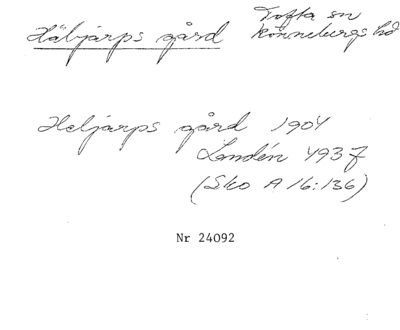 Häljarps gård
Tofta sn
Rönnebergs hd
Heljarps gård 1904
Landén 4937
(Sko A 16:136)
Nr 24092